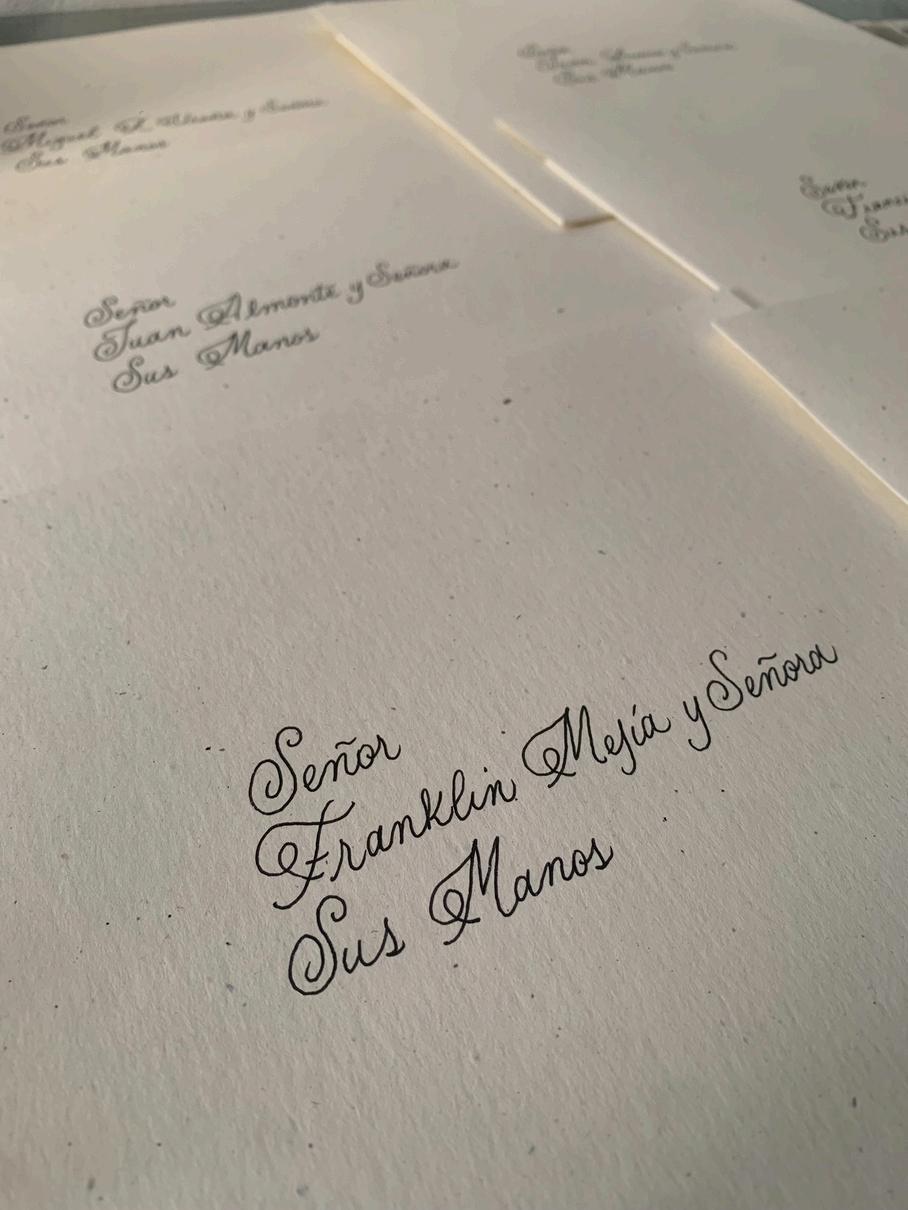 Señor
Miguel
y Señora
Sus Manos
Señor
Juan Almonte y Señora
Sus Manos
Señor
Juan
y Señora
Sus Manos
Señor
Señor
Franklin Mejía y Señora
Sus Manos